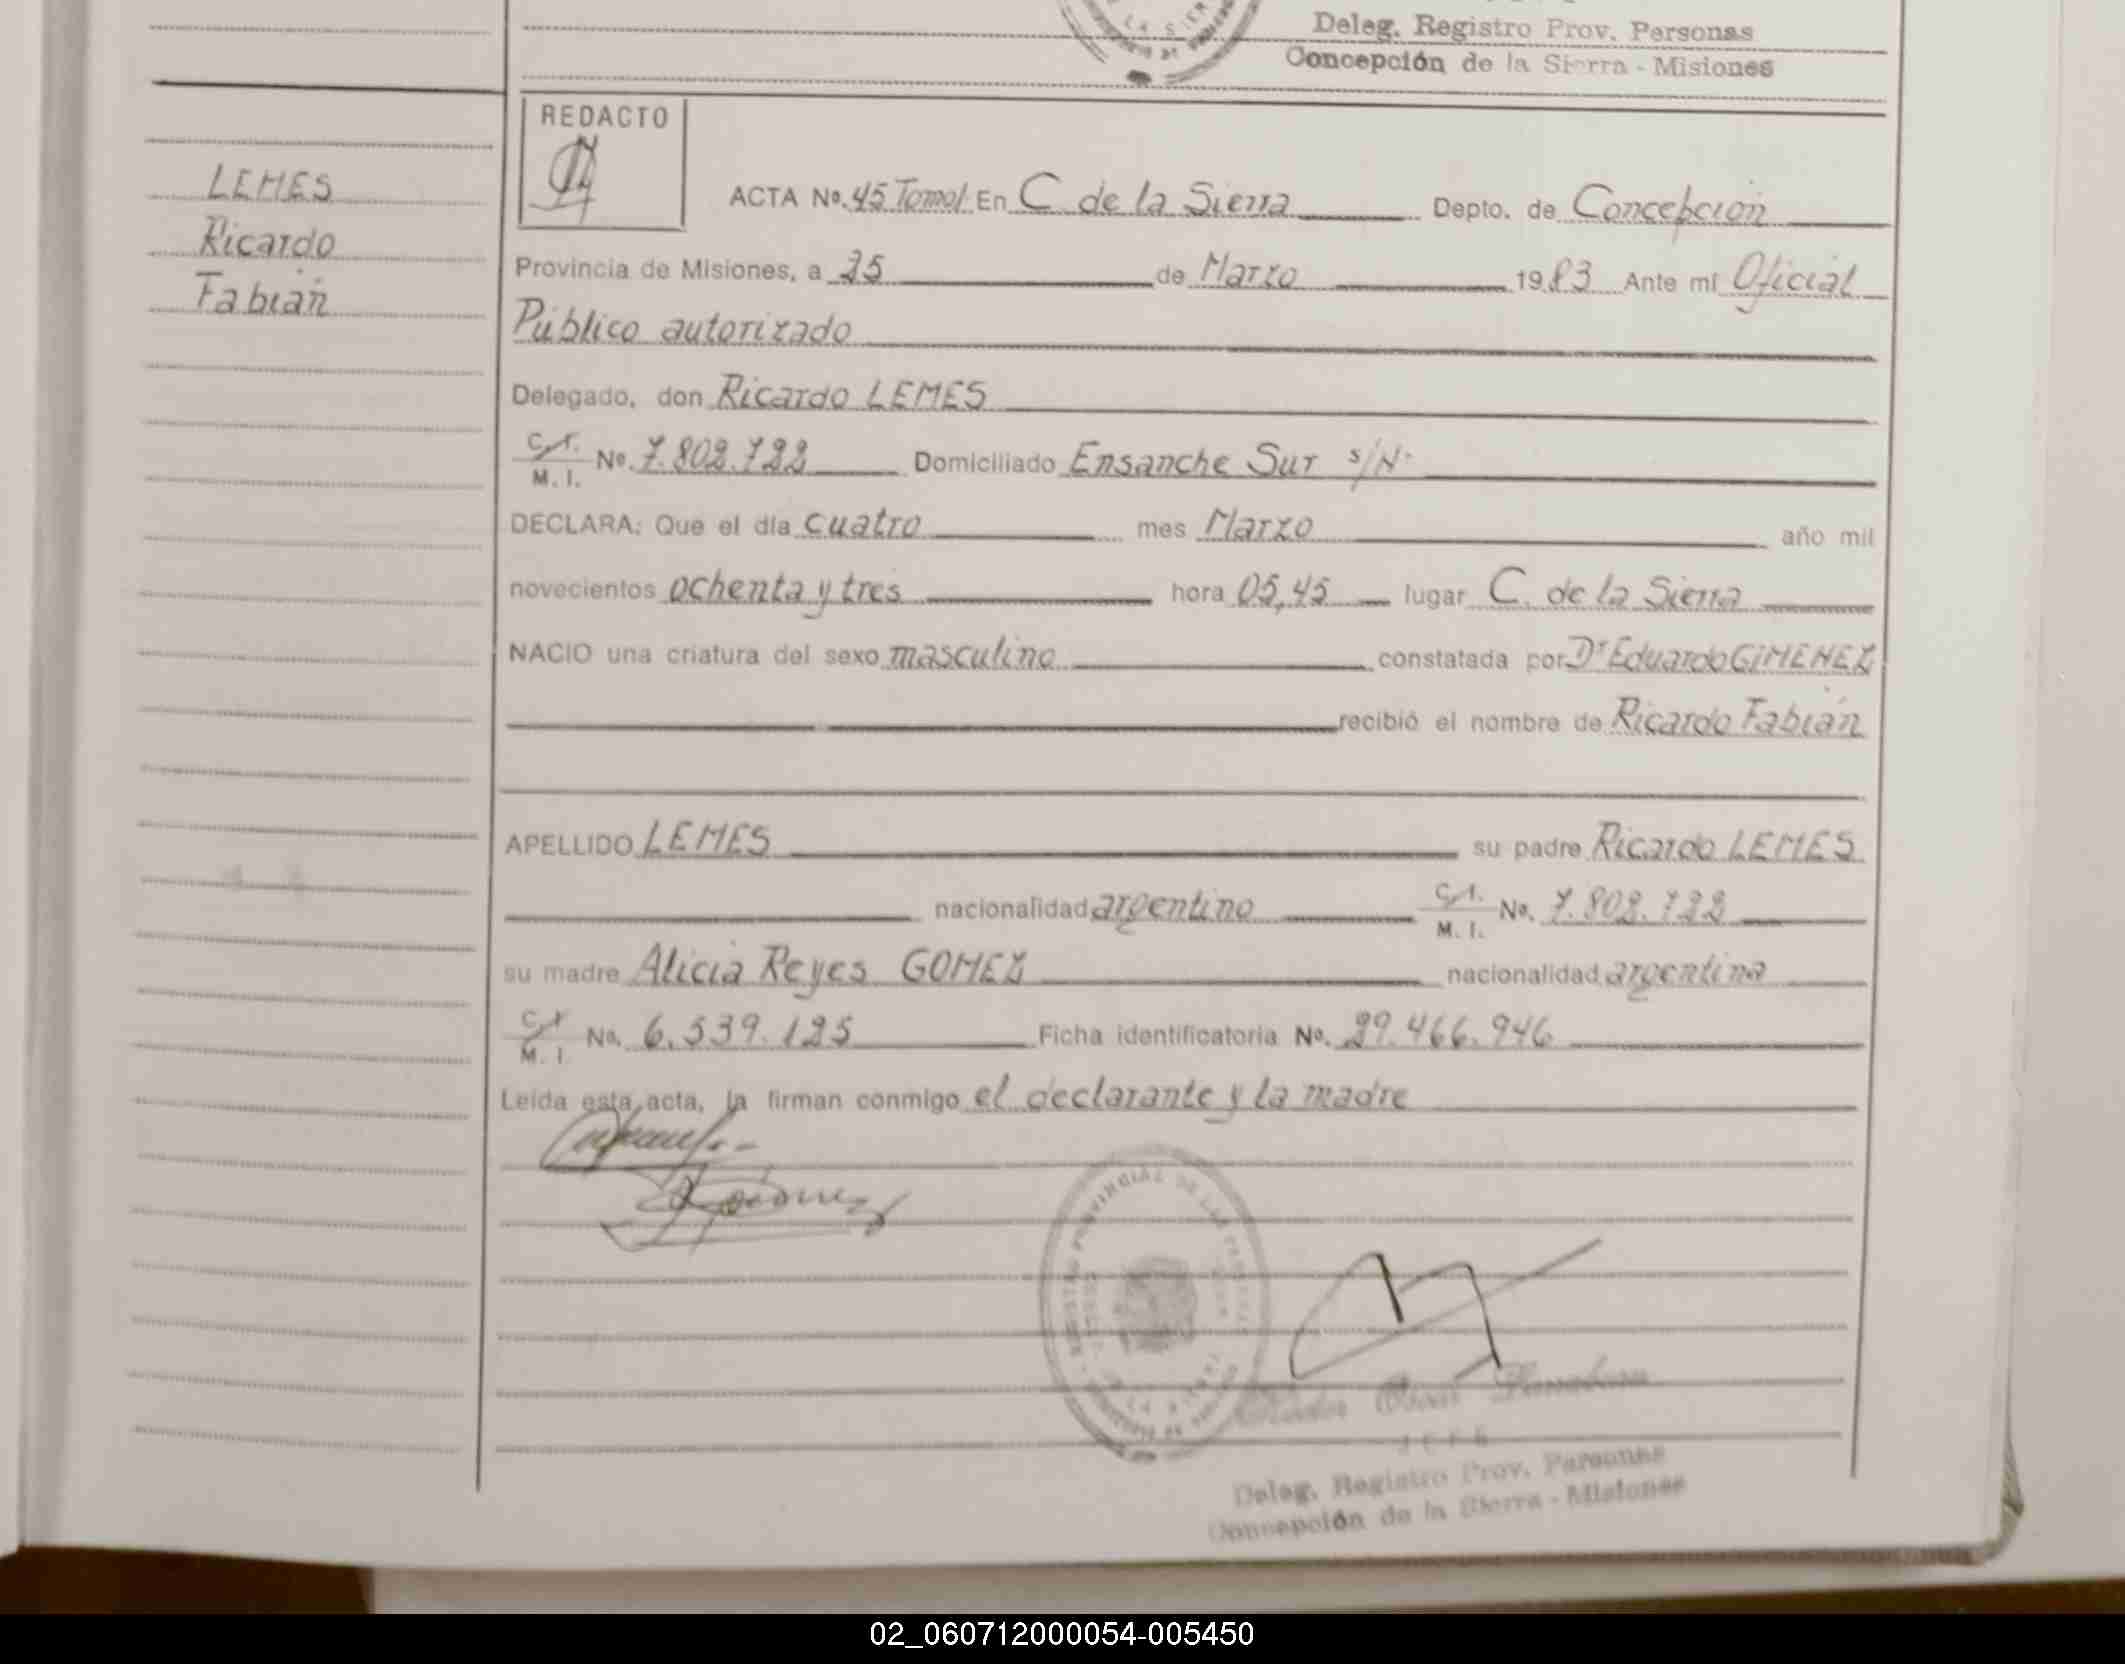 Deleg. Registro Prov. Personas
Concepción de la Sierra - Misiones
REDACTO
LEMES
Ricardo
Fabián
ACTA No. 45 Tomo I En C de la Sierra Depto. de Concepción
Provincia de Misiones, a 25 de Marzo 1983 Ante mí Oficial
Público autorizado
Delegado, don Ricardo LEMES
C.I.
M. I. No. 7.802.722 Domiciliado Ensanche Sur s/N·
DECLARA: Que el día cuatro mes Marzo año mil
novecientos ochenta y tres hora 05,45 lugar C. de la Sierra
NACIO una criatura del sexo masculino constatada por Dr Eduardo GIMENEZ
recibió el nombre de Ricardo Fabián
APELLIDO LEMES su padre Ricardo LEMES
nacionalidad argentino C.I.
M. I. No. 7.802.722
su madre Alicia Reyes GOMEZ nacionalidad argentina
C.I.
M. I. No. 6.539.125 Ficha identificatoria No. 29.466.946
Leída esta acta, la firman conmigo el declarante y la madre
REGISTRO PROVINCIAL DE LAS PERSONAS
JEFE
Deleg. Registro Prov. Personas
Concepción de la Sierra - Misiones
02_060712000054-005450